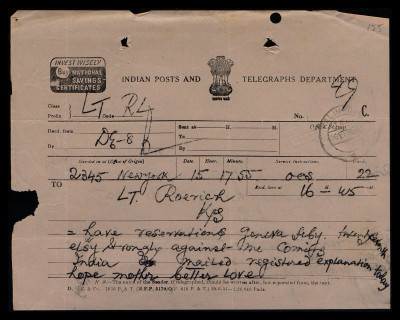 155
INVEST WISELY
Buy NATIONAL
SAVINGS
CERTIFICATES
INDIAN POSTS AND TELEGRAPHS DEPARTMENT
49
Class LT RL
Prefix Code No. C.
Recd. from Sent at H. M. Office Stamp
De-8
By To By
Handed in at (Office of Origin) Date Hour Minute Service Instructions Words
2345 Newyork 15 17 55 22
TO Recd. here at 16 H 45 M
LT. Roerich
Kpg
= have reservations Geneva July. twentyseventh
elsy strongly against me coming
India mailed registered explanation today
hope mother better love
N.B.—The name of the Sender, if telegraphed, should be written after, but separated from, the text.